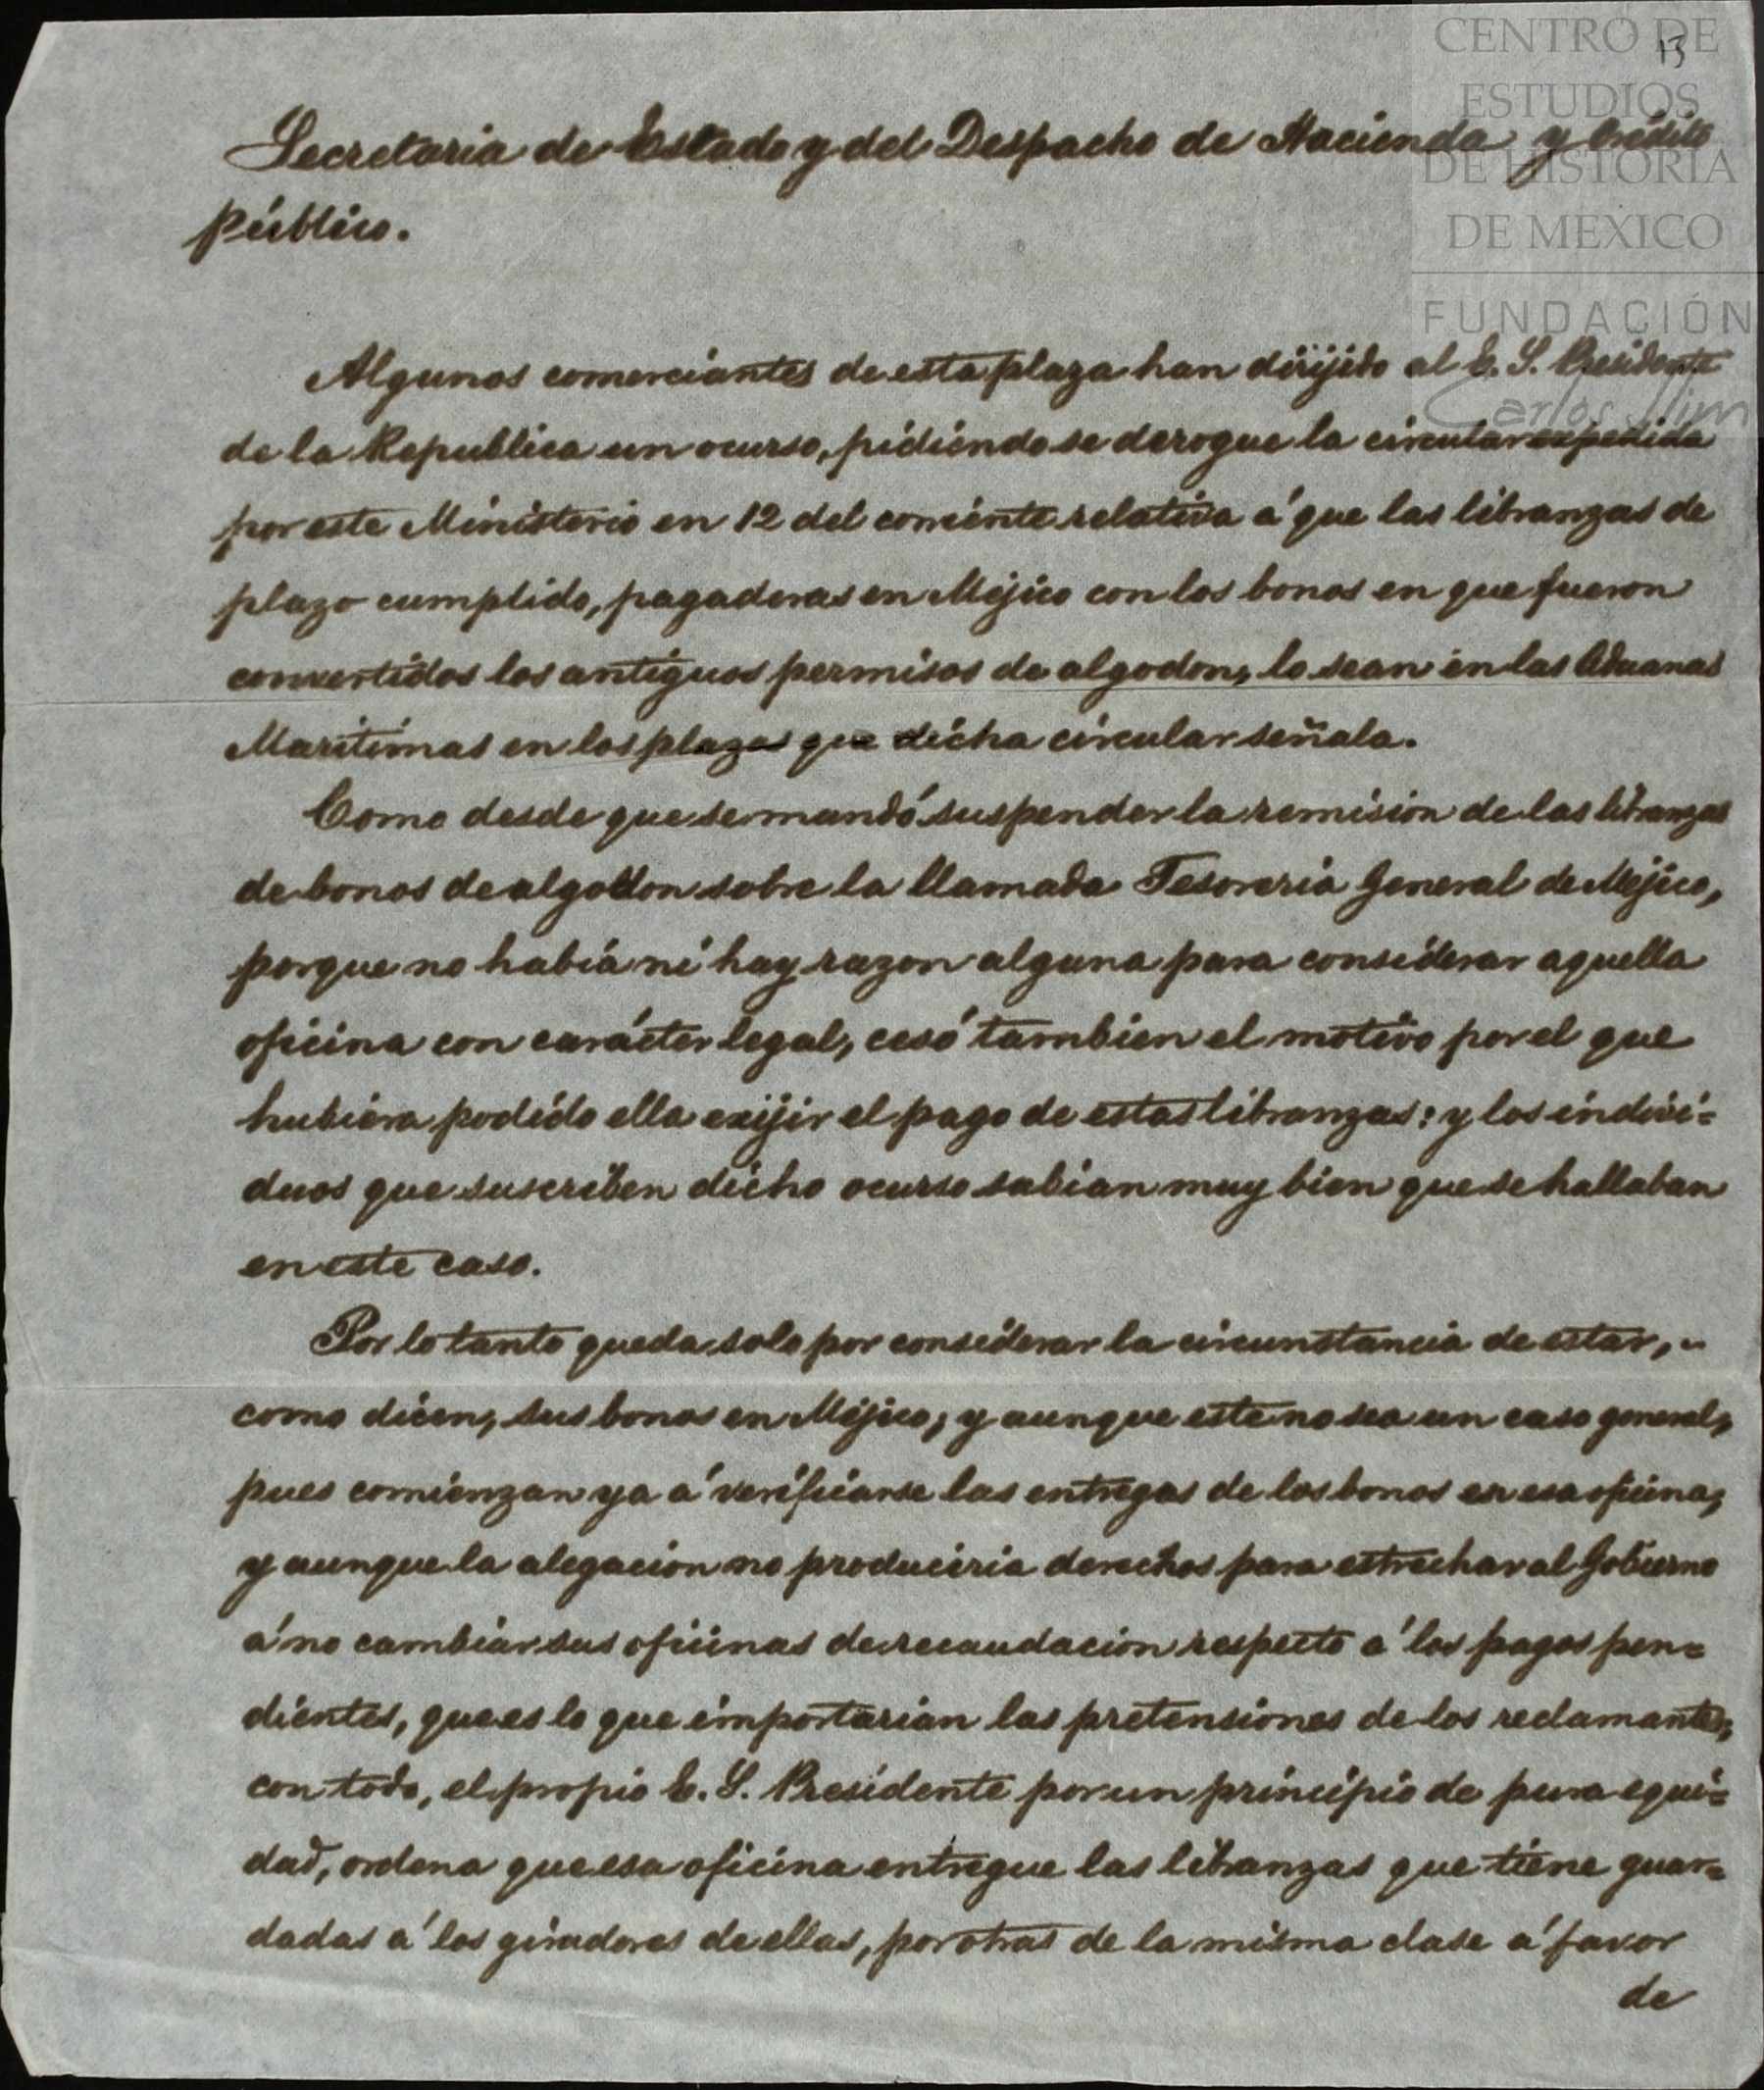 CENTRO DE
ESTUDIOS
DE HISTORIA
DE MEXICO
FUNDACIÓN
Carlos Slim
13
Secretaria de Estado y del Despacho de Hacienda y Crédito
Público.
Algunos comerciantes de esta plaza han dirijido al E. S. Presidente
de la Republica un ocurso, pidiendo se derogue la circular expedida
por este Ministerio en 12 del corriente relativa á que las libranzas de
plazo cumplido, pagaderas en Mejico con los bonos en que fueron
convertidos los antiguos permisos de algodon, lo sean en las Aduanas
Maritimas en los plazos que dicha circular señala.
Como desde que se mandó suspender la remision de las libranzas
de bonos de algodon sobre la llamada Tesoreria General de Mejico,
porque no habia ni hay razon alguna para considerar aquella
oficina con carácter legal, cesó tambien el motivo por el que
hubiera podido ella exijir el pago de estas libranzas: y los indivi=
duos que suscriben dicho ocurso sabian muy bien que se hallaban
en este caso.
Por lo tanto queda solo por considerar la circunstancia de estar,
como dicen, sus bonos en Méjico; y aunque este no sea un caso general,
pues comienzan ya á verificarse las entregas de los bonos en esa oficina;
y aunque la alegacion no produciria derechos para estrechar al Gobierno
á no cambiar sus oficinas de recaudacion respecto á los pagos pen=
dientes, que es lo que importarian las pretensiones de los reclamantes,
con todo, el propio E. S. Presidente por un principio de pura equi=
dad, ordena que esa oficina entregue las libranzas que tiene guar=
dadas á los giradores de ellas, por otras de la misma clase á favor
de